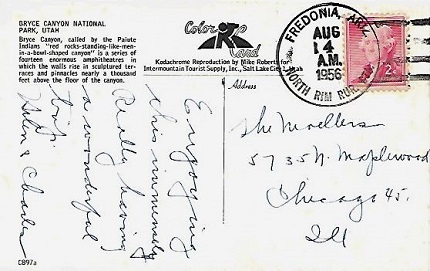 BRYCE CANYON NATIONAL
PARK, UTAH
Bryce Canyon, called by the Paiute
Indians "red rocks-standing-like-men-
in-a-bowl-shaped canyon" is a series of
fourteen enormous amphitheatres in
which the walls rise in sculptured ter-
races and pinnacles nearly a thousand
feet above the floor of the canyon.
Enjoying
this immensely
Really having
a wonderful
trip.
Helen & Charles
C897a
Color
Card
Kodachrome Reproduction by Mike Roberts for
Intermountain Tourist Supply, Inc., Salt Lake City 1, Utah
Address
FREDONIA, ARIZ.
AUG
14
A.M.
1956
NORTH RIM RUR.
2¢
The Moellers
5735 N. Maplewood
Chicago 45.
Ill